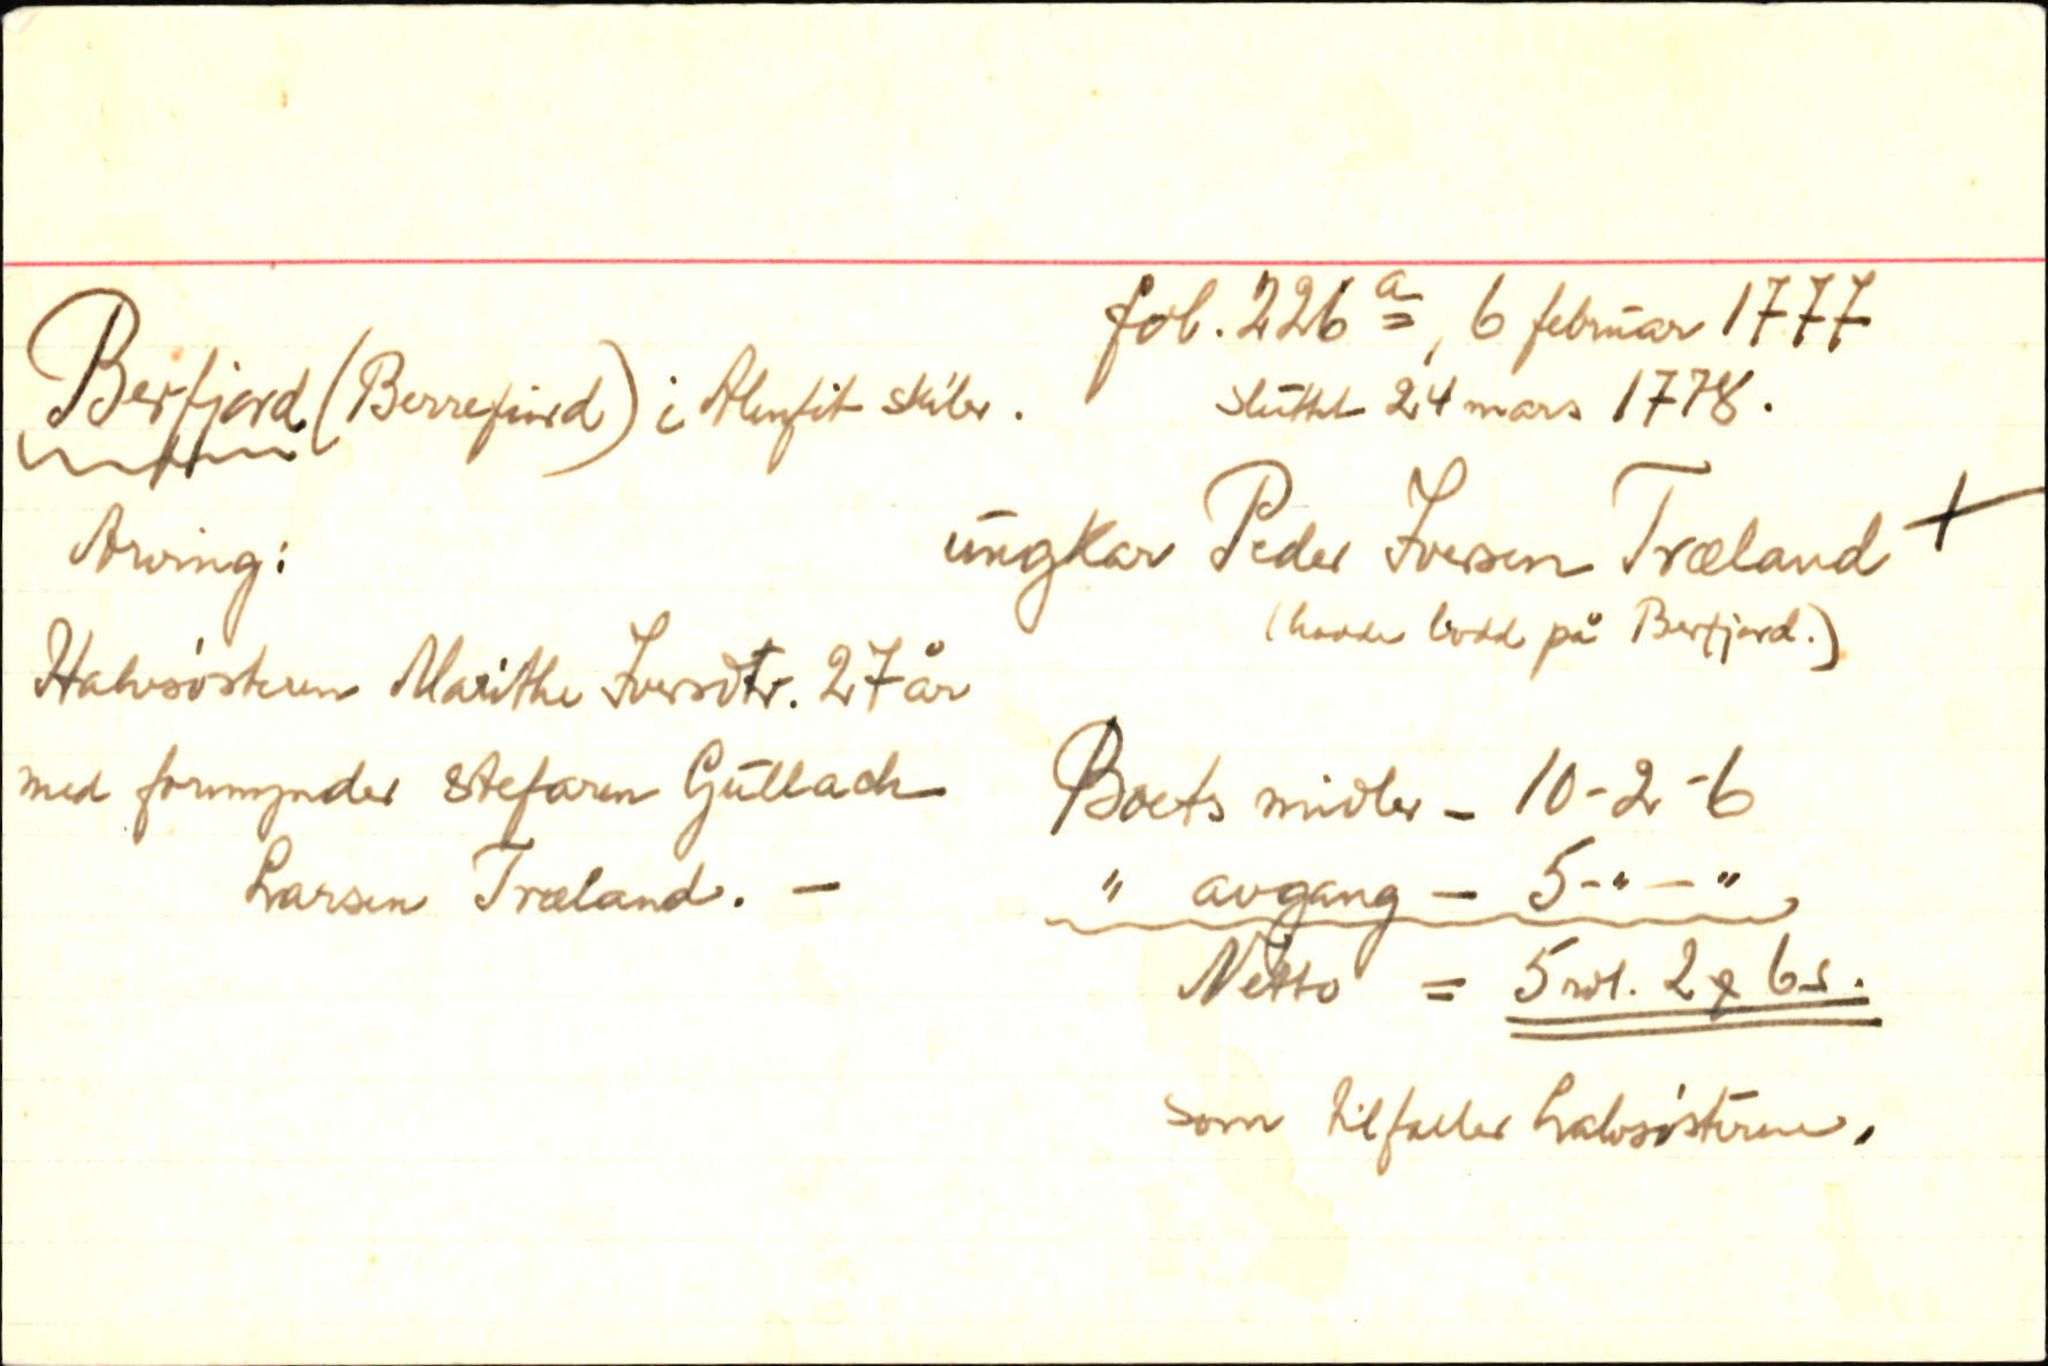 fol. 226 a, 6 februar 1777
Berfjord (Berrefiord) i Alenfit skibr.
sluttet 24 mars 1778.
Arving:
ungkar Peder Iversen Træland +
(hadde bodd på Berfjord.)
Halvsösteren Marithe Iversdtr. 27 år
med formynder stefaren Gullach
Larsen Træland. —
Boets midler - 10-2-6
" avgang - 5-"-"
Netto = 5 rdl. 2 ♂ 6 s.
som tilfaller halvsösteren.